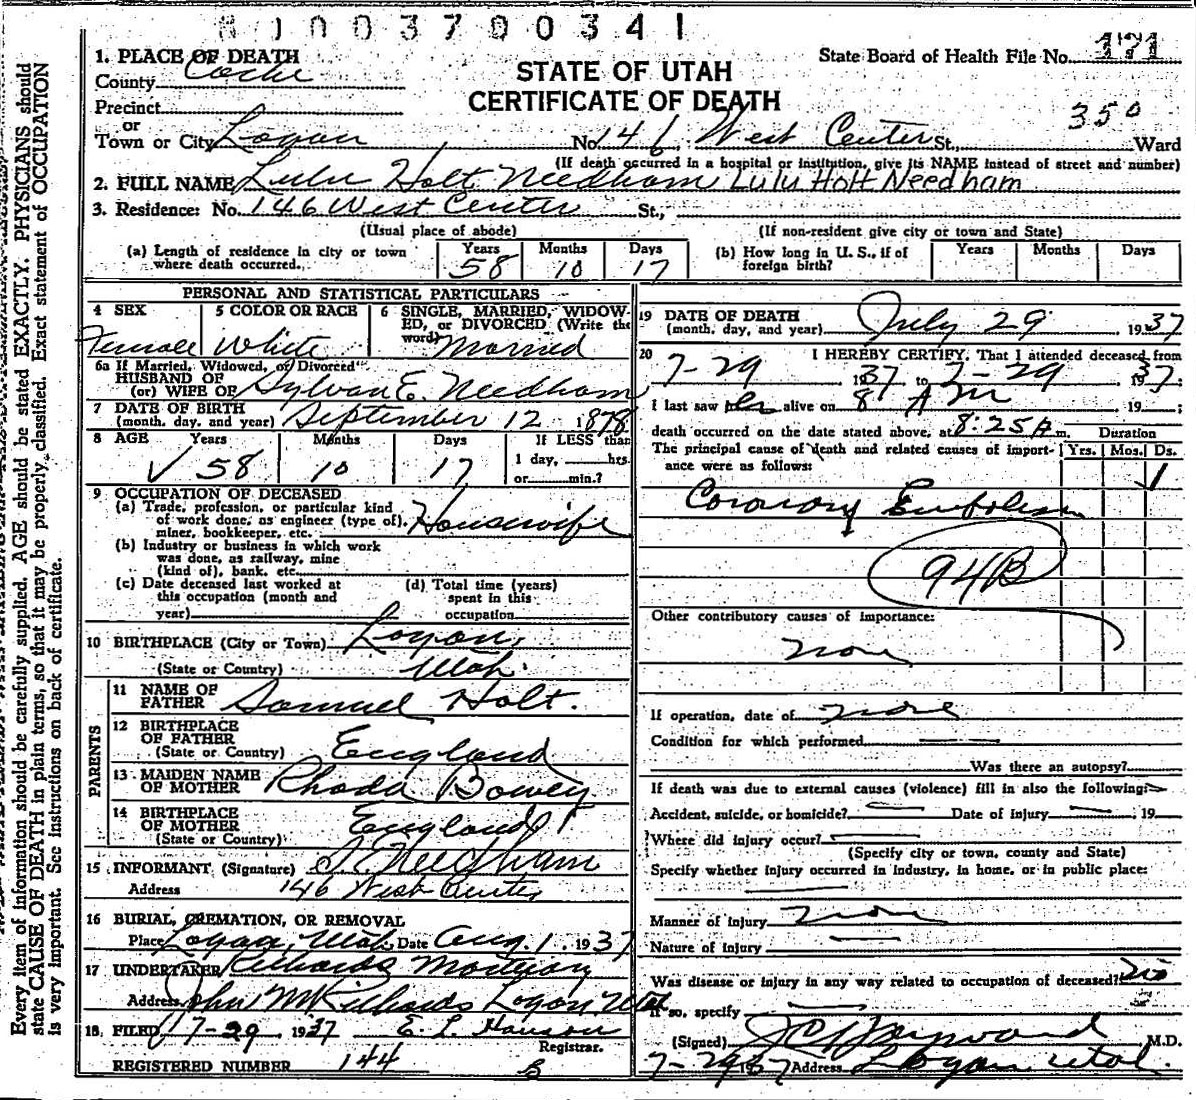 1003700341
1. PLACE OF DEATH
County Cache
State Board of Health File No. 171
STATE OF UTAH
CERTIFICATE OF DEATH
350
Precinct
or
Town or City Logan No. 146 West Center St., Ward
(If death occurred in a hospital or institution, give its NAME instead of street and number)
2. FULL NAME Lulu Holt Needham Lulu Holt Needham
3. Residence: No. 146 West Center St.,
(Usual place of abode) (If non-resident give city or town and State)
(a) Length of residence in city or town where death occurred. Years 58 Months 10 Days 17
(b) How long in U. S., if of foreign birth? Years Months Days
PERSONAL AND STATISTICAL PARTICULARS
4 SEX Female
5 COLOR OR RACE White
6 SINGLE, MARRIED, WIDOWED, or DIVORCED (Write the word) Married
6a If Married, Widowed, or Divorced
HUSBAND OF
(or) WIFE OF Sylvan E. Needham
7 DATE OF BIRTH
(month, day, and year) September 12 1878
8 AGE Years 58 Months 10 Days 17
If LESS than
1 day, hrs.
or min.?
9 OCCUPATION OF DECEASED
(a) Trade, profession, or particular kind
of work done, as engineer (type of), Housewife
miner, bookkeeper, etc.
(b) Industry or business in which work
was done, as railway, mine
(kind of), bank, etc.
(c) Date deceased last worked at
this occupation (month and
year)
(d) Total time (years)
spent in this
occupation
10 BIRTHPLACE (City or Town) Logan,
(State or Country) Utah
PARENTS
11 NAME OF
FATHER Samuel Holt.
12 BIRTHPLACE
OF FATHER England
(State or Country)
13 MAIDEN NAME
OF MOTHER Rhoda Bowey
14 BIRTHPLACE
OF MOTHER England
(State or Country)
15 INFORMANT (Signature) S. E. Needham
Address 146 West Center
16 BURIAL, CREMATION, OR REMOVAL
Place Logan, Utah, Date Aug. 1. 1937
17 UNDERTAKER Richards Mortuary
Address John M Richards Logan Utah
18. FILED 7-29 1937 E. L. Hanson
Registrar.
REGISTERED NUMBER 144
19 DATE OF DEATH
(month, day, and year) July 29 1937
20 I HEREBY CERTIFY, That I attended deceased from
7-29 1937 to 7-29 1937;
I last saw her alive on 8 A m 19 ;
death occurred on the date stated above, at 8:25 A m. Duration
The principal cause of death and related causes of importance were as follows: Yrs. Mos. Ds.
Coronary Embolism 1
94B
Other contributory causes of importance:
none
If operation, date of none
Condition for which performed
Was there an autopsy?
If death was due to external causes (violence) fill in also the following:
Accident, suicide, or homicide? Date of injury 19
Where did injury occur?
(Specify city or town, county and State)
Specify whether injury occurred in industry, in home, or in public place:
Manner of injury none
Nature of injury
Was disease or injury in any way related to occupation of deceased? no
If so, specify
(Signed) J C Hayward M.D.
7-29 1937 Address Logan Utah.
Every item of information should be carefully supplied. AGE should be stated EXACTLY. PHYSICIANS should
state CAUSE OF DEATH in plain terms, so that it may be properly classified. Exact statement of OCCUPATION
is very important. See instructions on back of certificate.